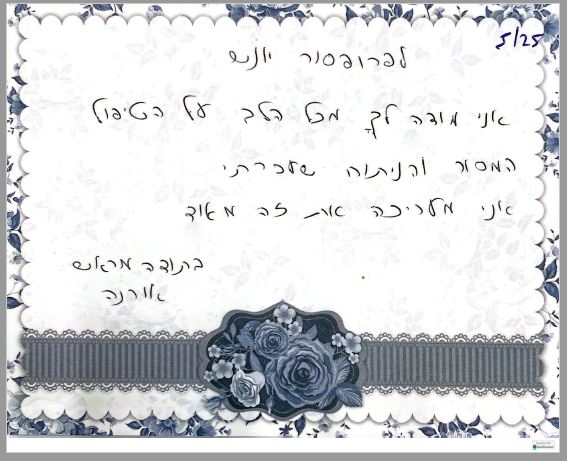 5/25
לפרופסור יונש
אני מודה לך מכל הלב על הטיפול
המסור והניתוח שעברתי
אני מעריכה את זה מאוד
בתודה מראש
אורנה